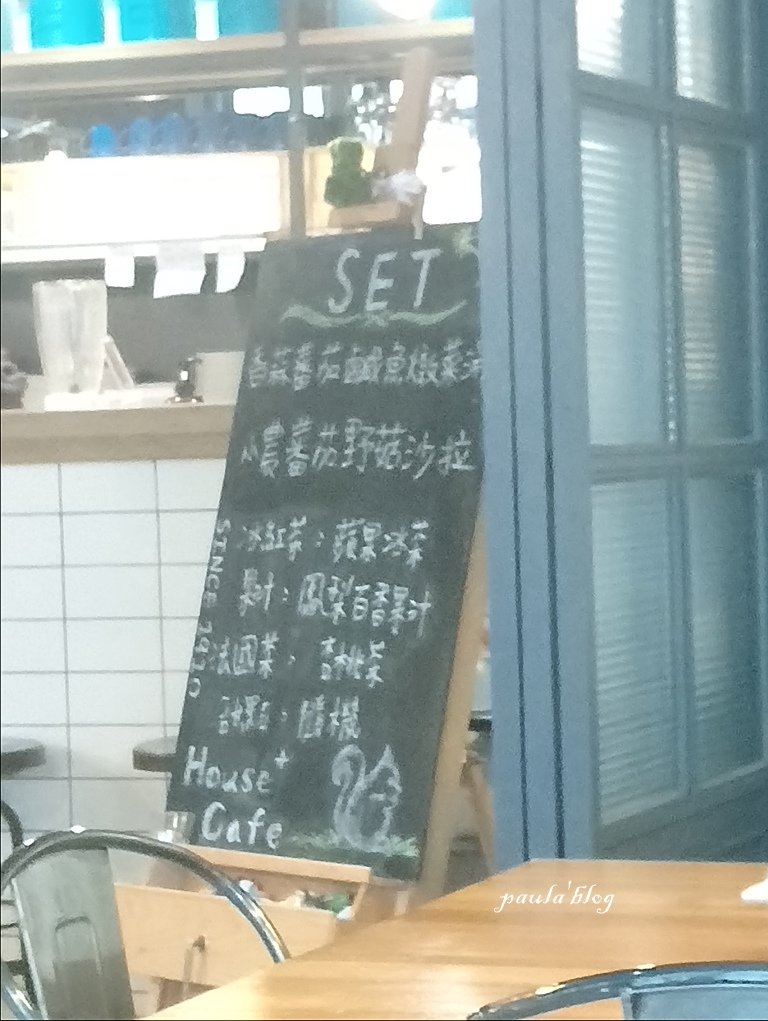 SET
香蒜蕃茄鹹魚燉菜
小農蕃茄野菇沙拉
冰紅茶：蘋果冰茶
果汁：鳳梨百香果汁
法國茶：杏桃茶
隨機
SINCE
House+
Cafe
paula'blog